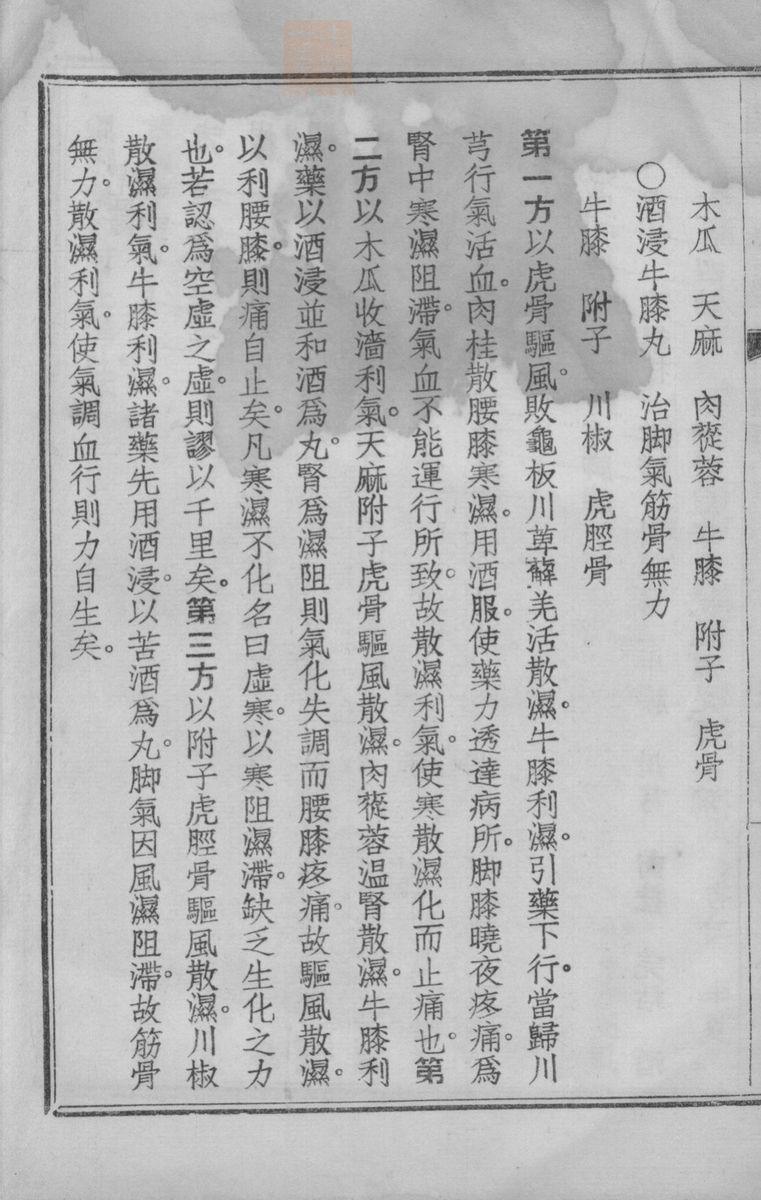 木瓜　天麻　肉蓯蓉　牛膝　附子　虎骨
○酒浸牛膝丸　治脚氣筋骨無力
牛膝　附子　川椒　虎脛骨
第一方以虎骨驅風。敗龜板川萆薢羌活散濕。牛膝利濕。引藥下行。當歸川
芎行氣活血。肉桂散腰膝寒濕。用酒服。使藥力透達病所。脚膝曉夜疼痛。爲
腎中寒濕阻滯。氣血不能運行所致。故散濕利氣。使寒散濕化而止痛也。第
二方以木瓜收濇利氣。天麻附子虎骨驅風散濕。肉蓯蓉温腎散濕。牛膝利
濕。藥以酒浸並和酒爲丸。腎爲濕阻則氣化失調而腰膝疼痛。故驅風散濕。
以利腰膝。則痛自止矣。凡寒濕不化名曰虛寒。以寒阻濕滯。缺乏生化之力
也。若認爲空虛之虛。則謬以千里矣。第三方以附子虎脛骨驅風散濕。川椒
散濕利氣。牛膝利濕。諸藥先用酒浸。以苦酒爲丸。脚氣因風濕阻滯。故筋骨
無力。散濕利氣。使氣調血行則力自生矣。